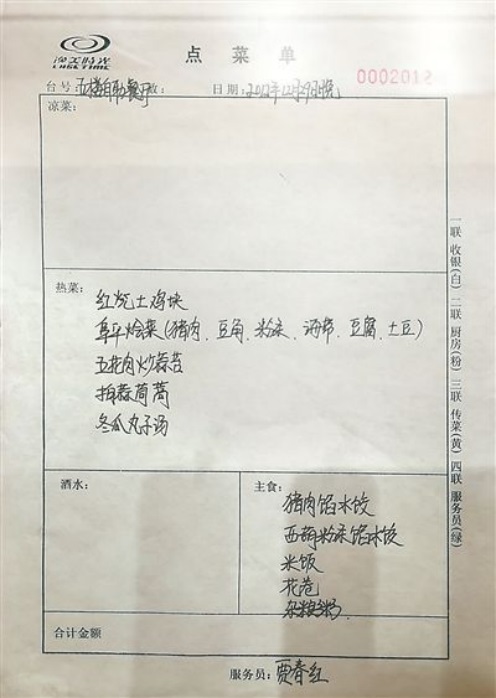 浪美時光
LUSETIME
点菜单
0002012
台号:五楼自助餐厅 数: 日期:2012年12月29日晚
凉菜:
热菜:
红烧土鸡块
阜平烩菜(猪肉、豆角、粉条、海带、豆腐、土豆)
五花肉炒蒜苔
拍蒜茼蒿
冬瓜丸子汤
酒水:
主食:
猪肉馅水饺
西葫粉条馅水饺
米饭
花卷
杂粮粥
合计金额
服务员:贾春红
一联 收银(白) 二联 厨房(粉) 三联 传菜(黄) 四联 服务员(绿)